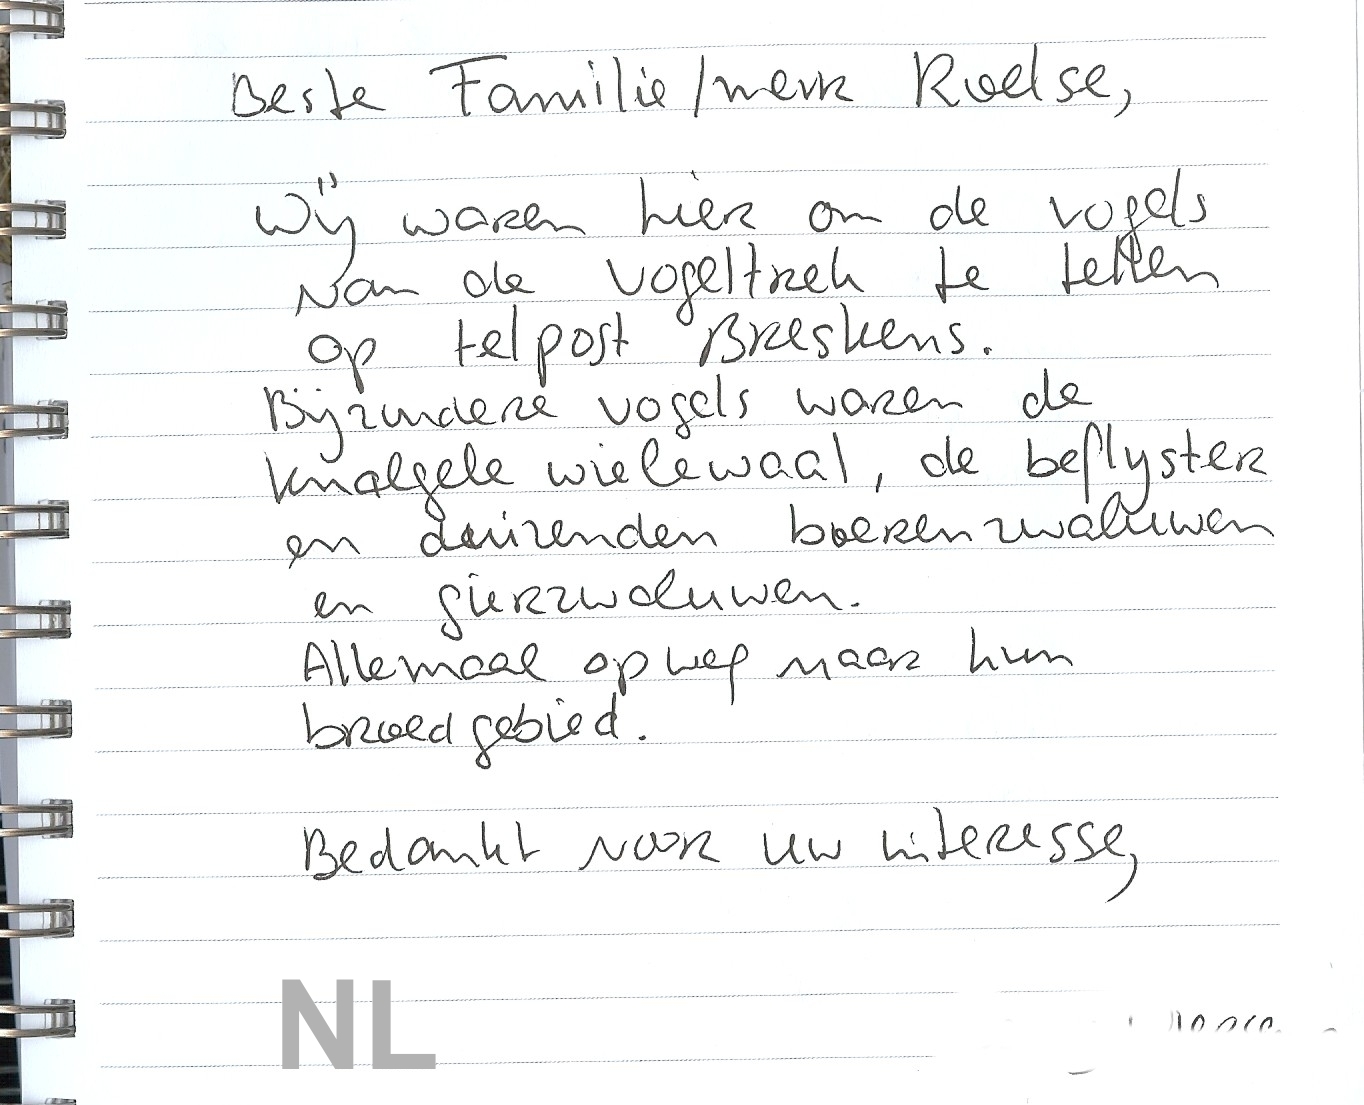 Beste Familie/merk Roelse,
Wij waren hier om de vogels
van de vogeltrek te tellen
op telpost Breskens.
Bijzondere vogels waren de
knalgele wielewaal, de beflijster
en duizenden boerenzwaluwen
en gierzwaluwen.
Allemaal op weg naar hun
broedgebied.
Bedankt voor uw interesse,
NL